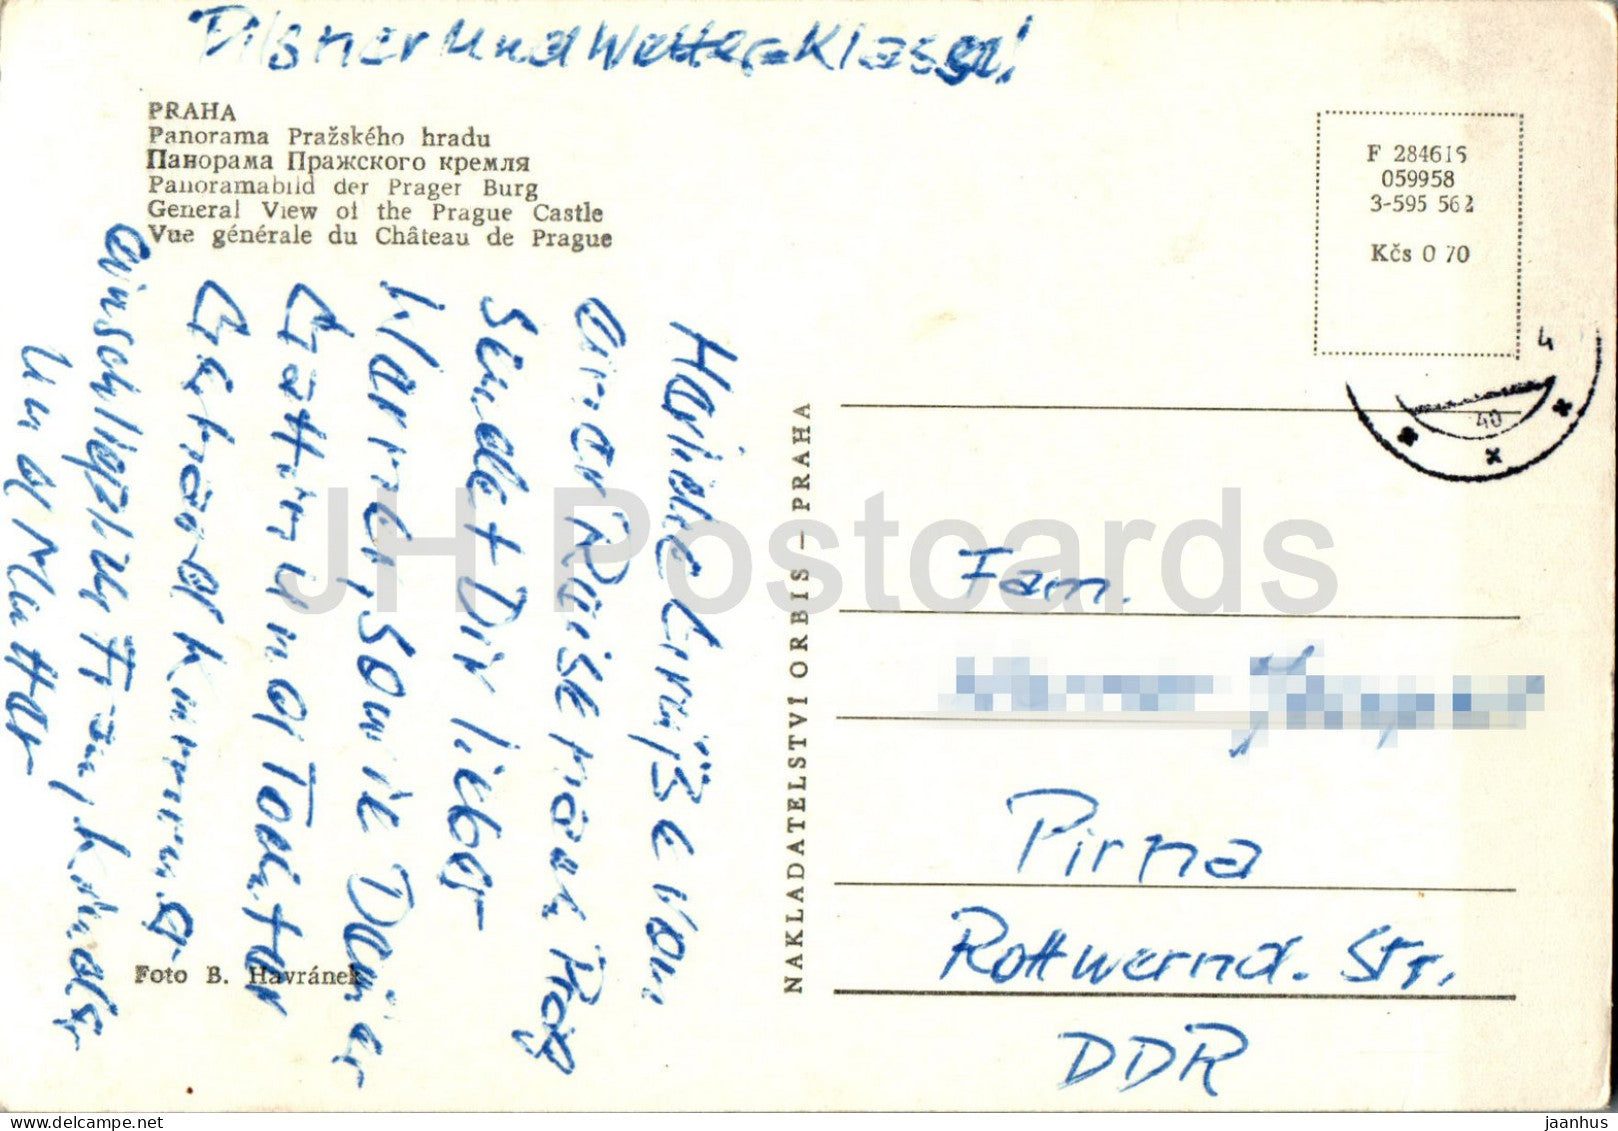 Pilsner und Wetter = Klasse!
PRAHA
Panorama Pražského hradu
Панорама Пражского кремля
Panoramabild der Prager Burg
General View of the Prague Castle
Vue générale du Château de Prague
F 284615
059958
3-595 562
Kčs 0 70
4
40
Herzliche Grüße von
einer Reise nach Prag
sendet Dir lieber
Werner, sowie Deiner
Gattin und Tochter
Gerhard
einschließlich Frau, Kinder
und Mutter
Foto B. Havránek
NAKLADATELSTVÍ ORBIS – PRAHA
Fam.
Pirna
Rottwernd. Str.
DDR
JH Postcards
www.delcampe.net
jaanhus